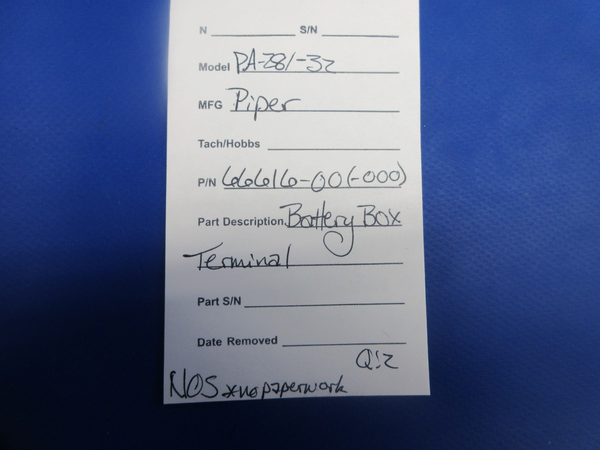 N S/N
Model PA-281-32
MFG Piper
Tach/Hobbs
P/N 66616-00(-000)
Part Description Battery Box
Terminal
Part S/N
Date Removed
Q:2
NOS *no paperwork